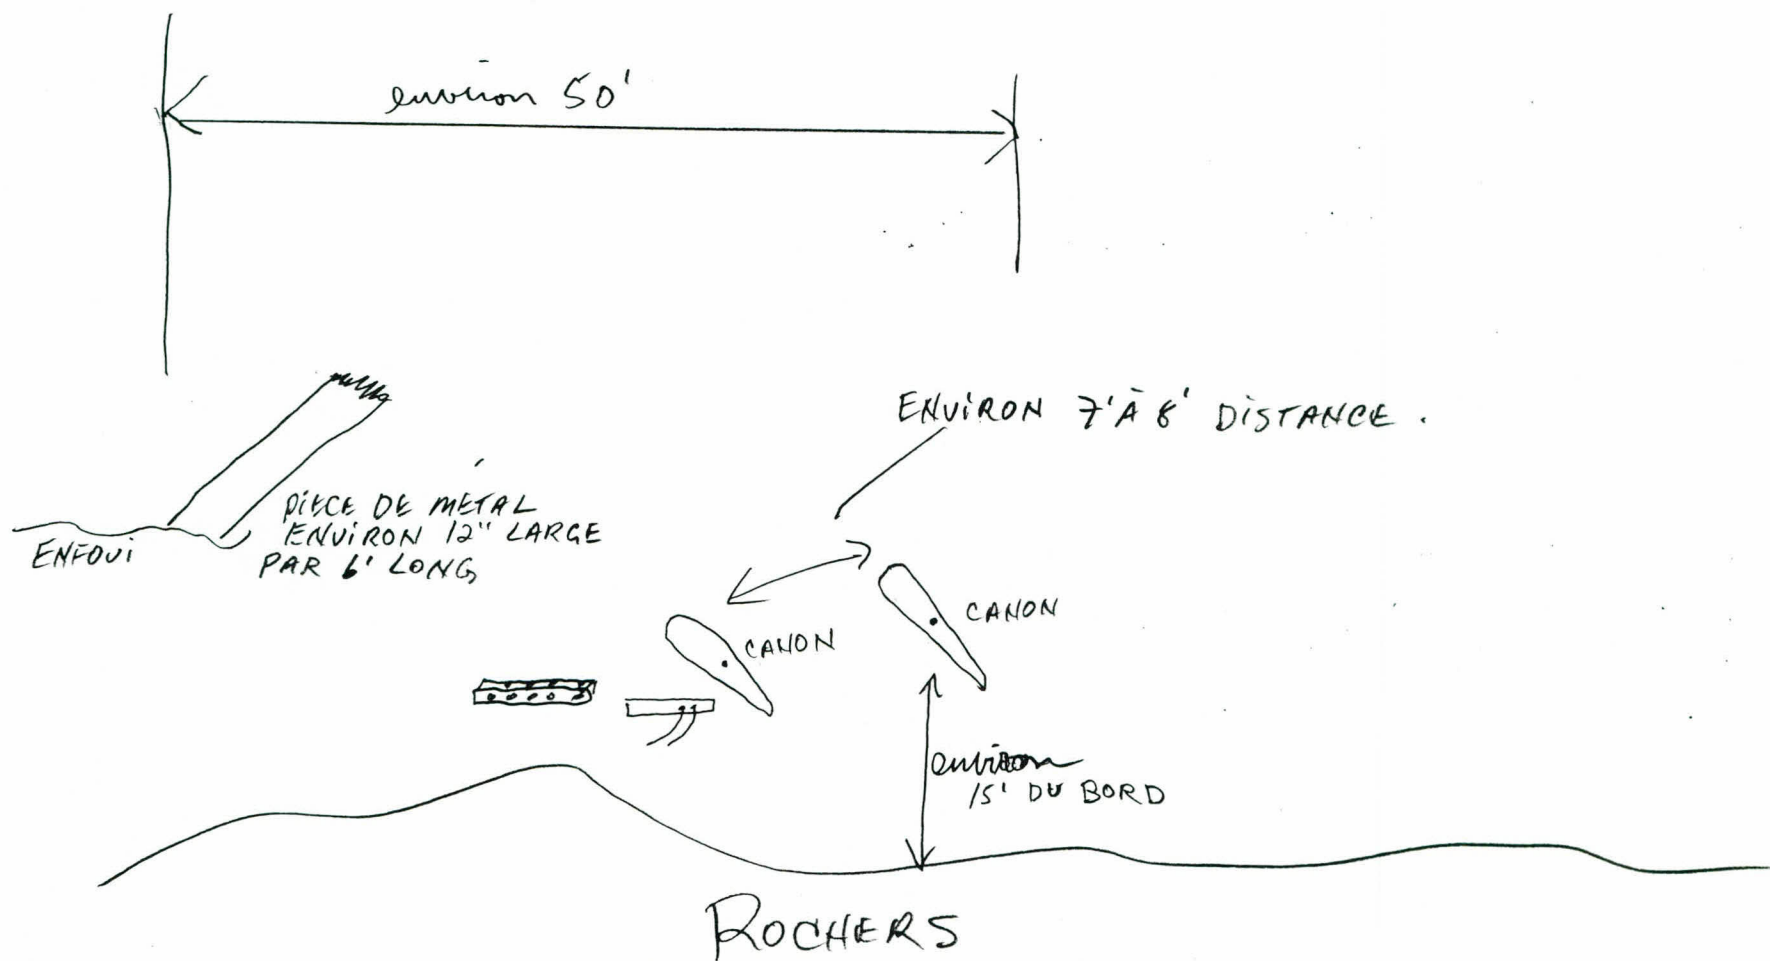 environ 50'
ENVIRON 7' À 8' DISTANCE.
PIÈCE DE MÉTAL
ENVIRON 12" LARGE
PAR 6' LONG
ENFOUI
CANON
CANON
environ
15' DU BORD
ROCHERS